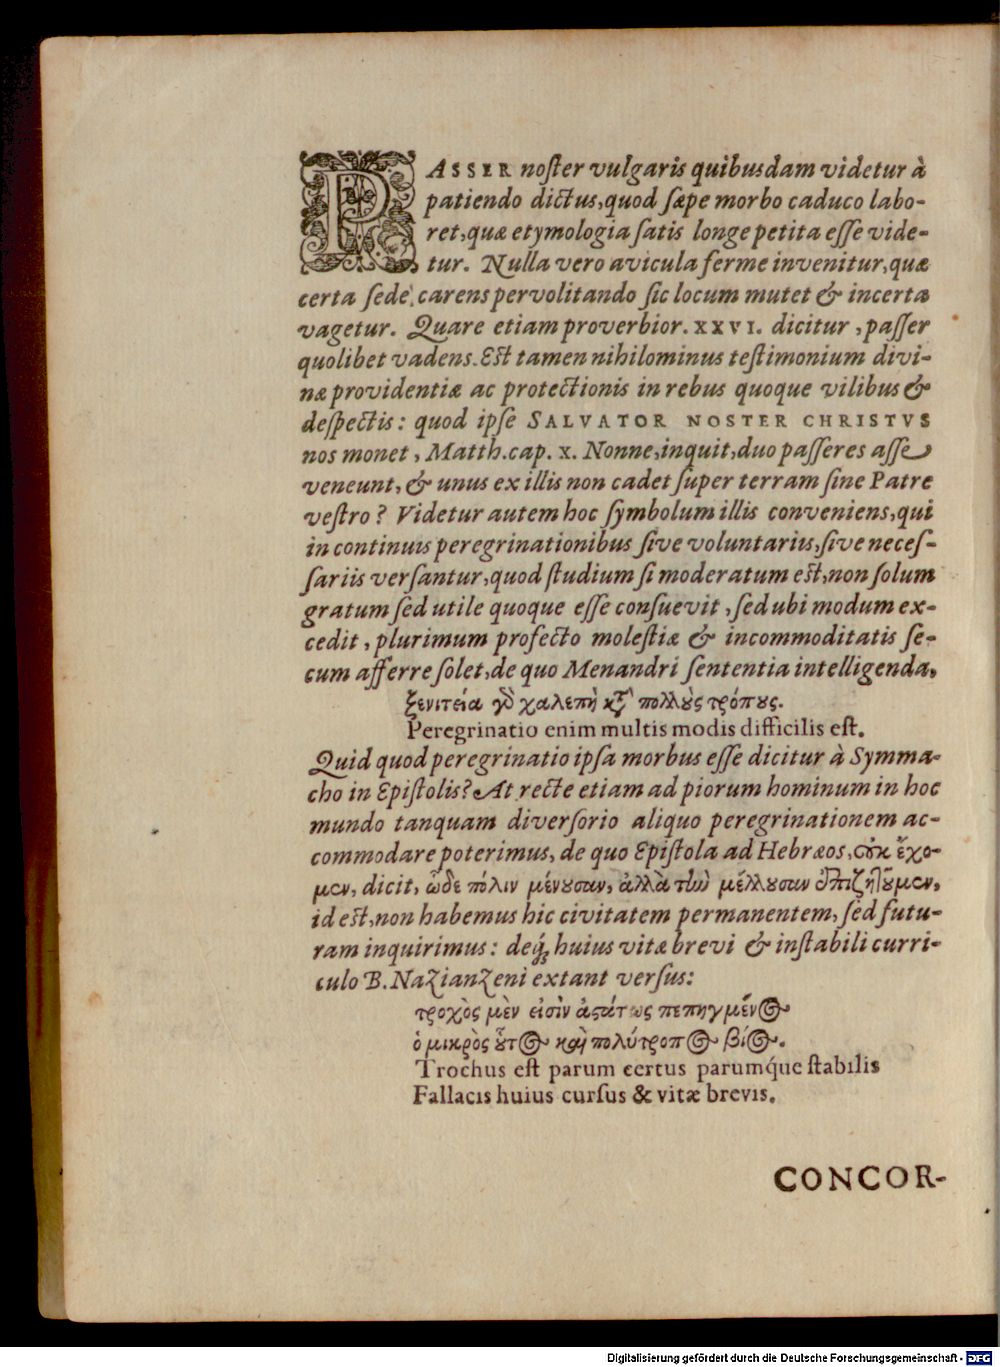 PASSER noster vulgaris quibusdam videtur à
patiendo dictus, quod sæpe morbo caduco labo-
ret, quæ etymologia satis longe petita esse vide-
tur. Nulla vero avicula ferme invenitur, quæ
certa sede, carens pervolitando sic locum mutet & incerta
vagetur. Quare etiam proverbior. XXVI. dicitur, passer
quolibet vadens. Est tamen nihilominus testimonium divi-
næ providentiæ ac protectionis in rebus quoque vilibus &
despectis: quod ipse SALVATOR NOSTER CHRISTVS
nos monet, Matth. cap. X. Nonne, inquit, duo passeres asse
veneunt, & unus ex illis non cadet super terram sine Patre
vestro? Videtur autem hoc symbolum illis conveniens, qui
in continuis peregrinationibus sive voluntariis, sive neces-
sariis versantur, quod studium si moderatum est, non solum
gratum sed utile quoque esse consuevit, sed ubi modum ex-
cedit, plurimum profecto molestiæ & incommoditatis se-
cum afferre solet, de quo Menandri sententia intelligenda,
ξενιτεία γὸ χαλεπὴ κτ̃ πολλοὺς τρόπους.
Peregrinatio enim multis modis difficilis est.
Quid quod peregrinatio ipsa morbus esse dicitur à Symma-
cho in Epistolis? At recte etiam ad piorum hominum in hoc
mundo tanquam diversorio aliquo peregrinationem ac-
commodare poterimus, de quo Epistola ad Hebræos, οὐκ ἔχο-
μεν, dicit, ὧδε πόλιν μένουσαν, ἀλλὰ τὴν μέλλουσαν ἐπιζητοῦμεν,
id est, non habemus hic civitatem permanentem, sed futu-
ram inquirimus: deq́; huius vitæ brevi & instabili curri-
culo B. Nazianzeni extant versus:
τροχὸς μὲν εἰσὶν ἀστάτως πεπηγμένος
ὁ μικρὸς οὗτος καὶ πολύτροπος βίος.
Trochus est parum certus parumq́ue stabilis
Fallacis huius cursus & vitæ brevis.
CONCOR-
Digitalisierung gefördert durch die Deutsche Forschungsgemeinschaft - DFG